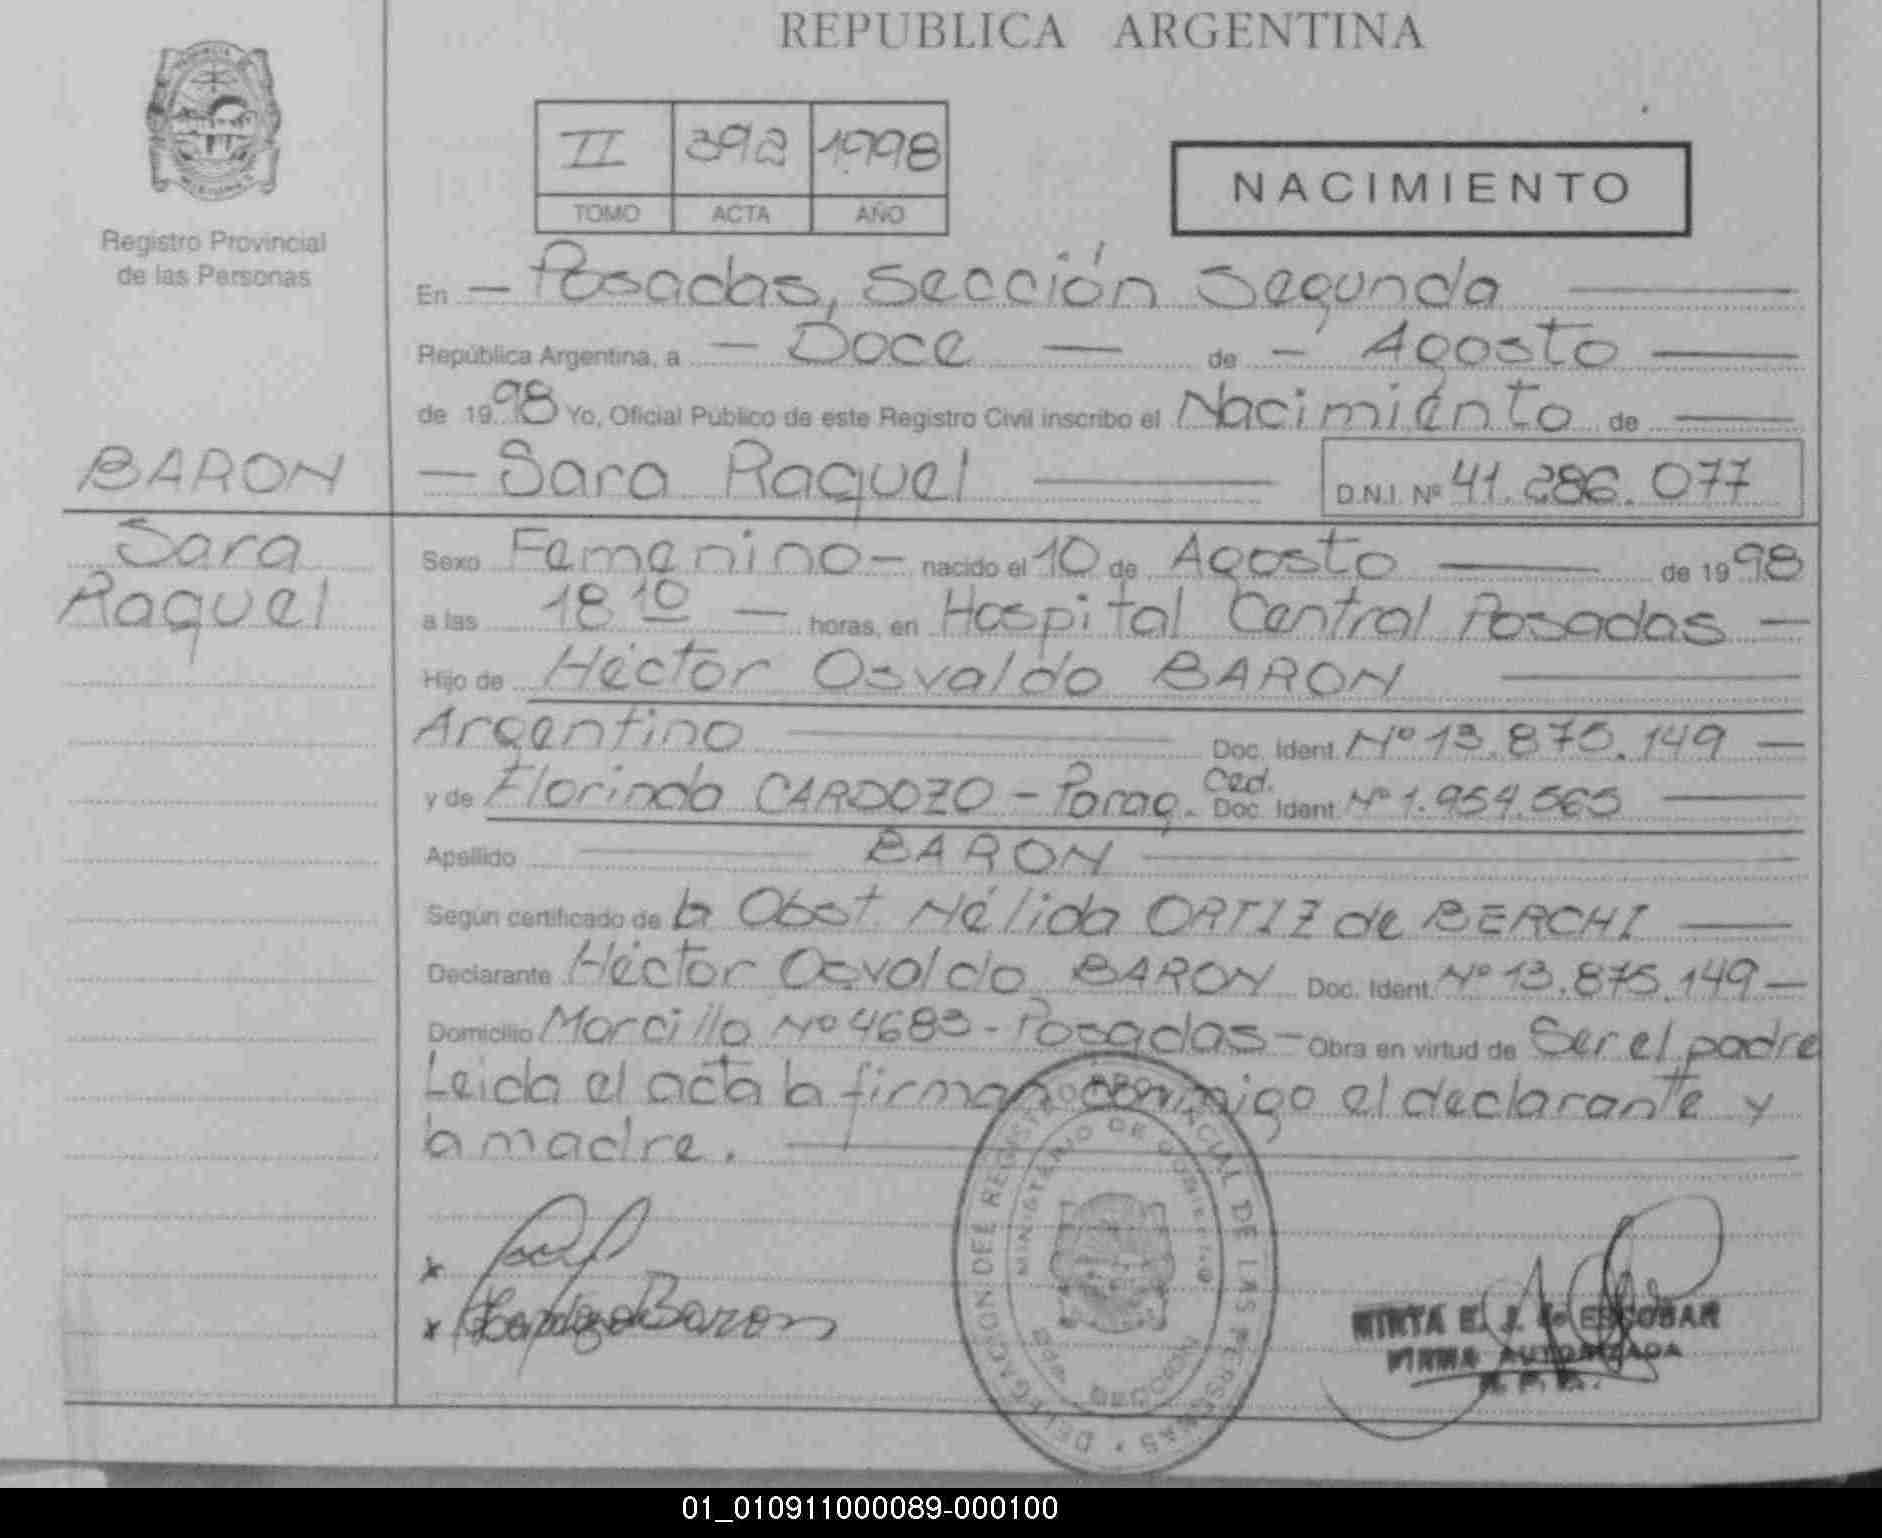 REPUBLICA ARGENTINA
II 392 1998
TOMO ACTA AÑO
NACIMIENTO
Registro Provincial
de las Personas
En — Posadas, Sección Segunda
República Argentina, a — Doce — de — Agosto
de 1998 Yo, Oficial Público de este Registro Civil inscribo el Nacimiento de
BARON
Sara
Raquel
— Sara Raquel D.N.I. Nº 41.286.077
Sexo Femenino — nacido el 10 de Agosto de 1998
a las 18 10 — horas, en Hospital Central Posadas —
Hijo de Héctor Osvaldo BARON
Argentino Doc. Ident. Nº 13.875.149 —
y de Florinda CARDOZO - Parag. Ced. Doc. Ident. Nº 1.954.565
Apellido BARON
Según certificado de la Obst. Nélida ORTIZ de BERCHI
Declarante Héctor Osvaldo BARON Doc. Ident. Nº 13.875.149 —
Domicilio Morcillo Nº 4683 - Posadas - Obra en virtud de Ser el padre
Leida el acta la firman conmigo el declarante y
la madre.
DELEGACION DEL REGISTRO PROVINCIAL DE LAS PERSONAS
MINISTERIO DE GOBIERNO
x
x Baron
MIRTA E. J. de ESCOBAR
FIRMA AUTORIZADA
01_010911000089-000100